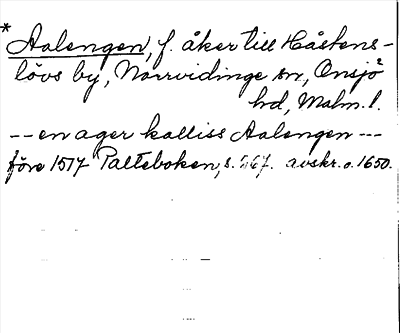 * Aalengen, f. åker till Håstens-
lövs by, Norrvidinge sn, Onsjö
hd, Malm. l.
-- en ager kalliss Aalengen ---
före 1517 Palteboken, s. 267. avskr. o. 1650.